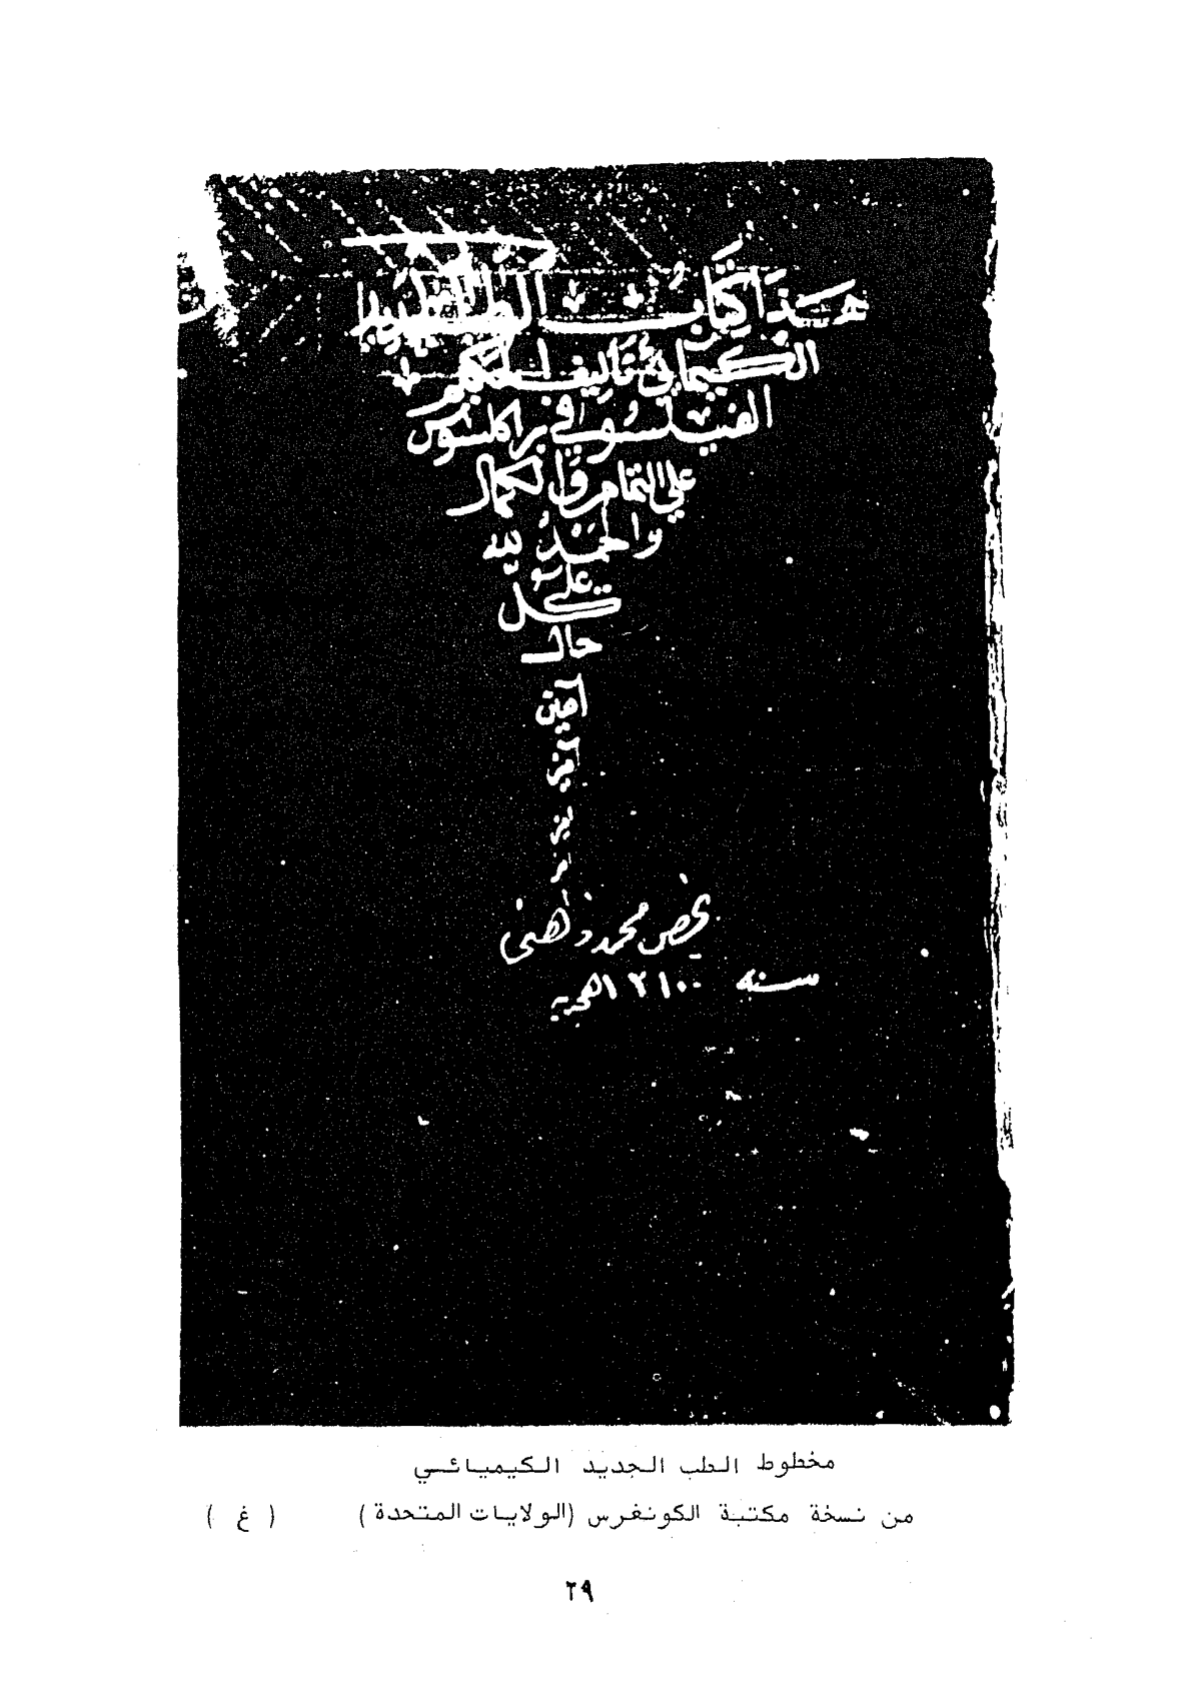 هَذَا كِتَابُ الطب الجديد
الكيميائي تَاليف الحكيم
الفيلسوفي براكلسوس
علي التمام والكمال
والحمدُ لله
على
كلّ
حال
آمين
آمين
يخص محمد ذهنى
سنه ٢١٠٠ الهجريه
مخطوط الطب الجديد الكيميائي
من نسخة مكتبة الكونغرس (الولايات المتحدة) (غ)
٢٩